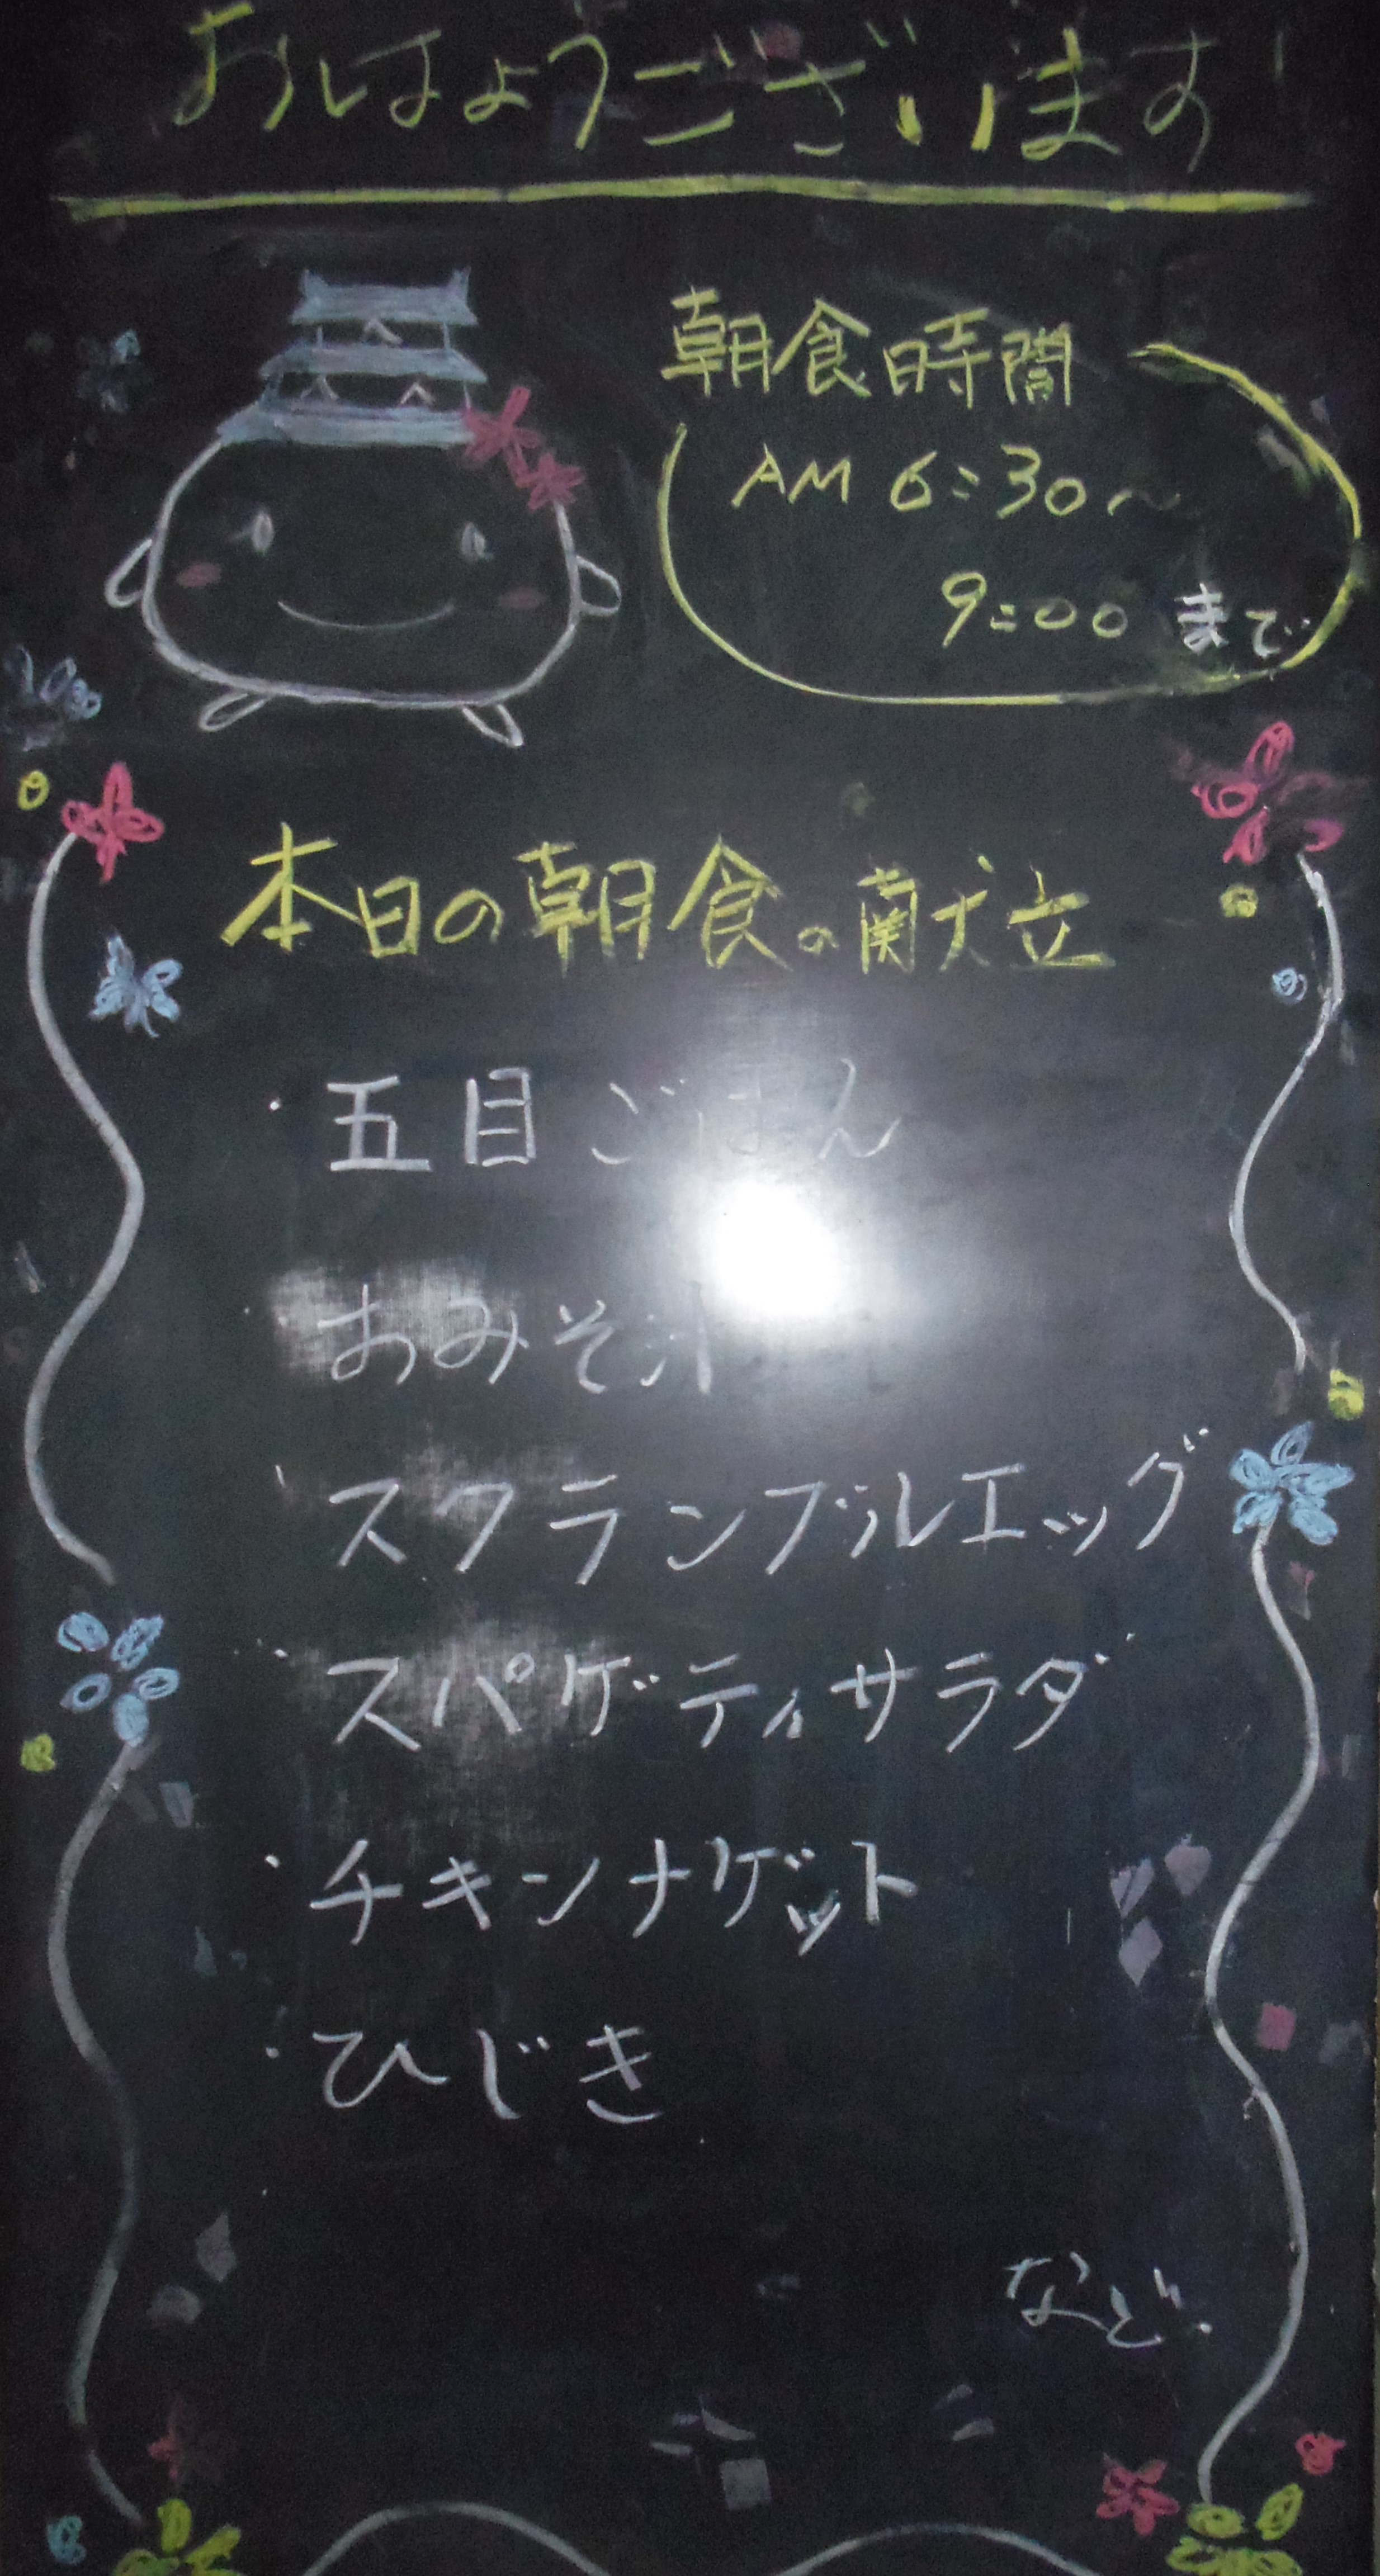 おはようございます
朝食時間
AM 6:30〜
9:00 まで
本日の朝食の献立
・五目ごはん
・おみそ汁
・スクランブルエッグ
・スパゲティサラダ
・チキンナゲット
・ひじき
など